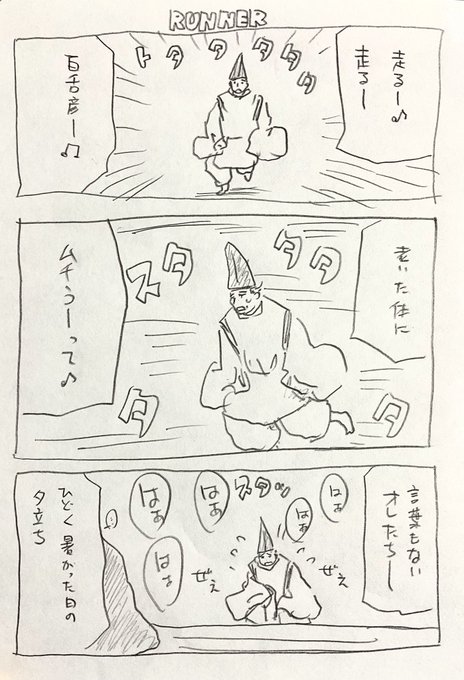 RUNNER
走るー♪
走るー
トタタタタタ
百舌彦ー♫
老いた体に
タタ
スタ
タ
タ
ムチうーって♪
言葉もない
オレたちー
はぁ
はぁ
スタッ
はぁ
はぁ
はぁ
ぜぇ
ぜぇ
ひどく暑かった日の
夕立ち